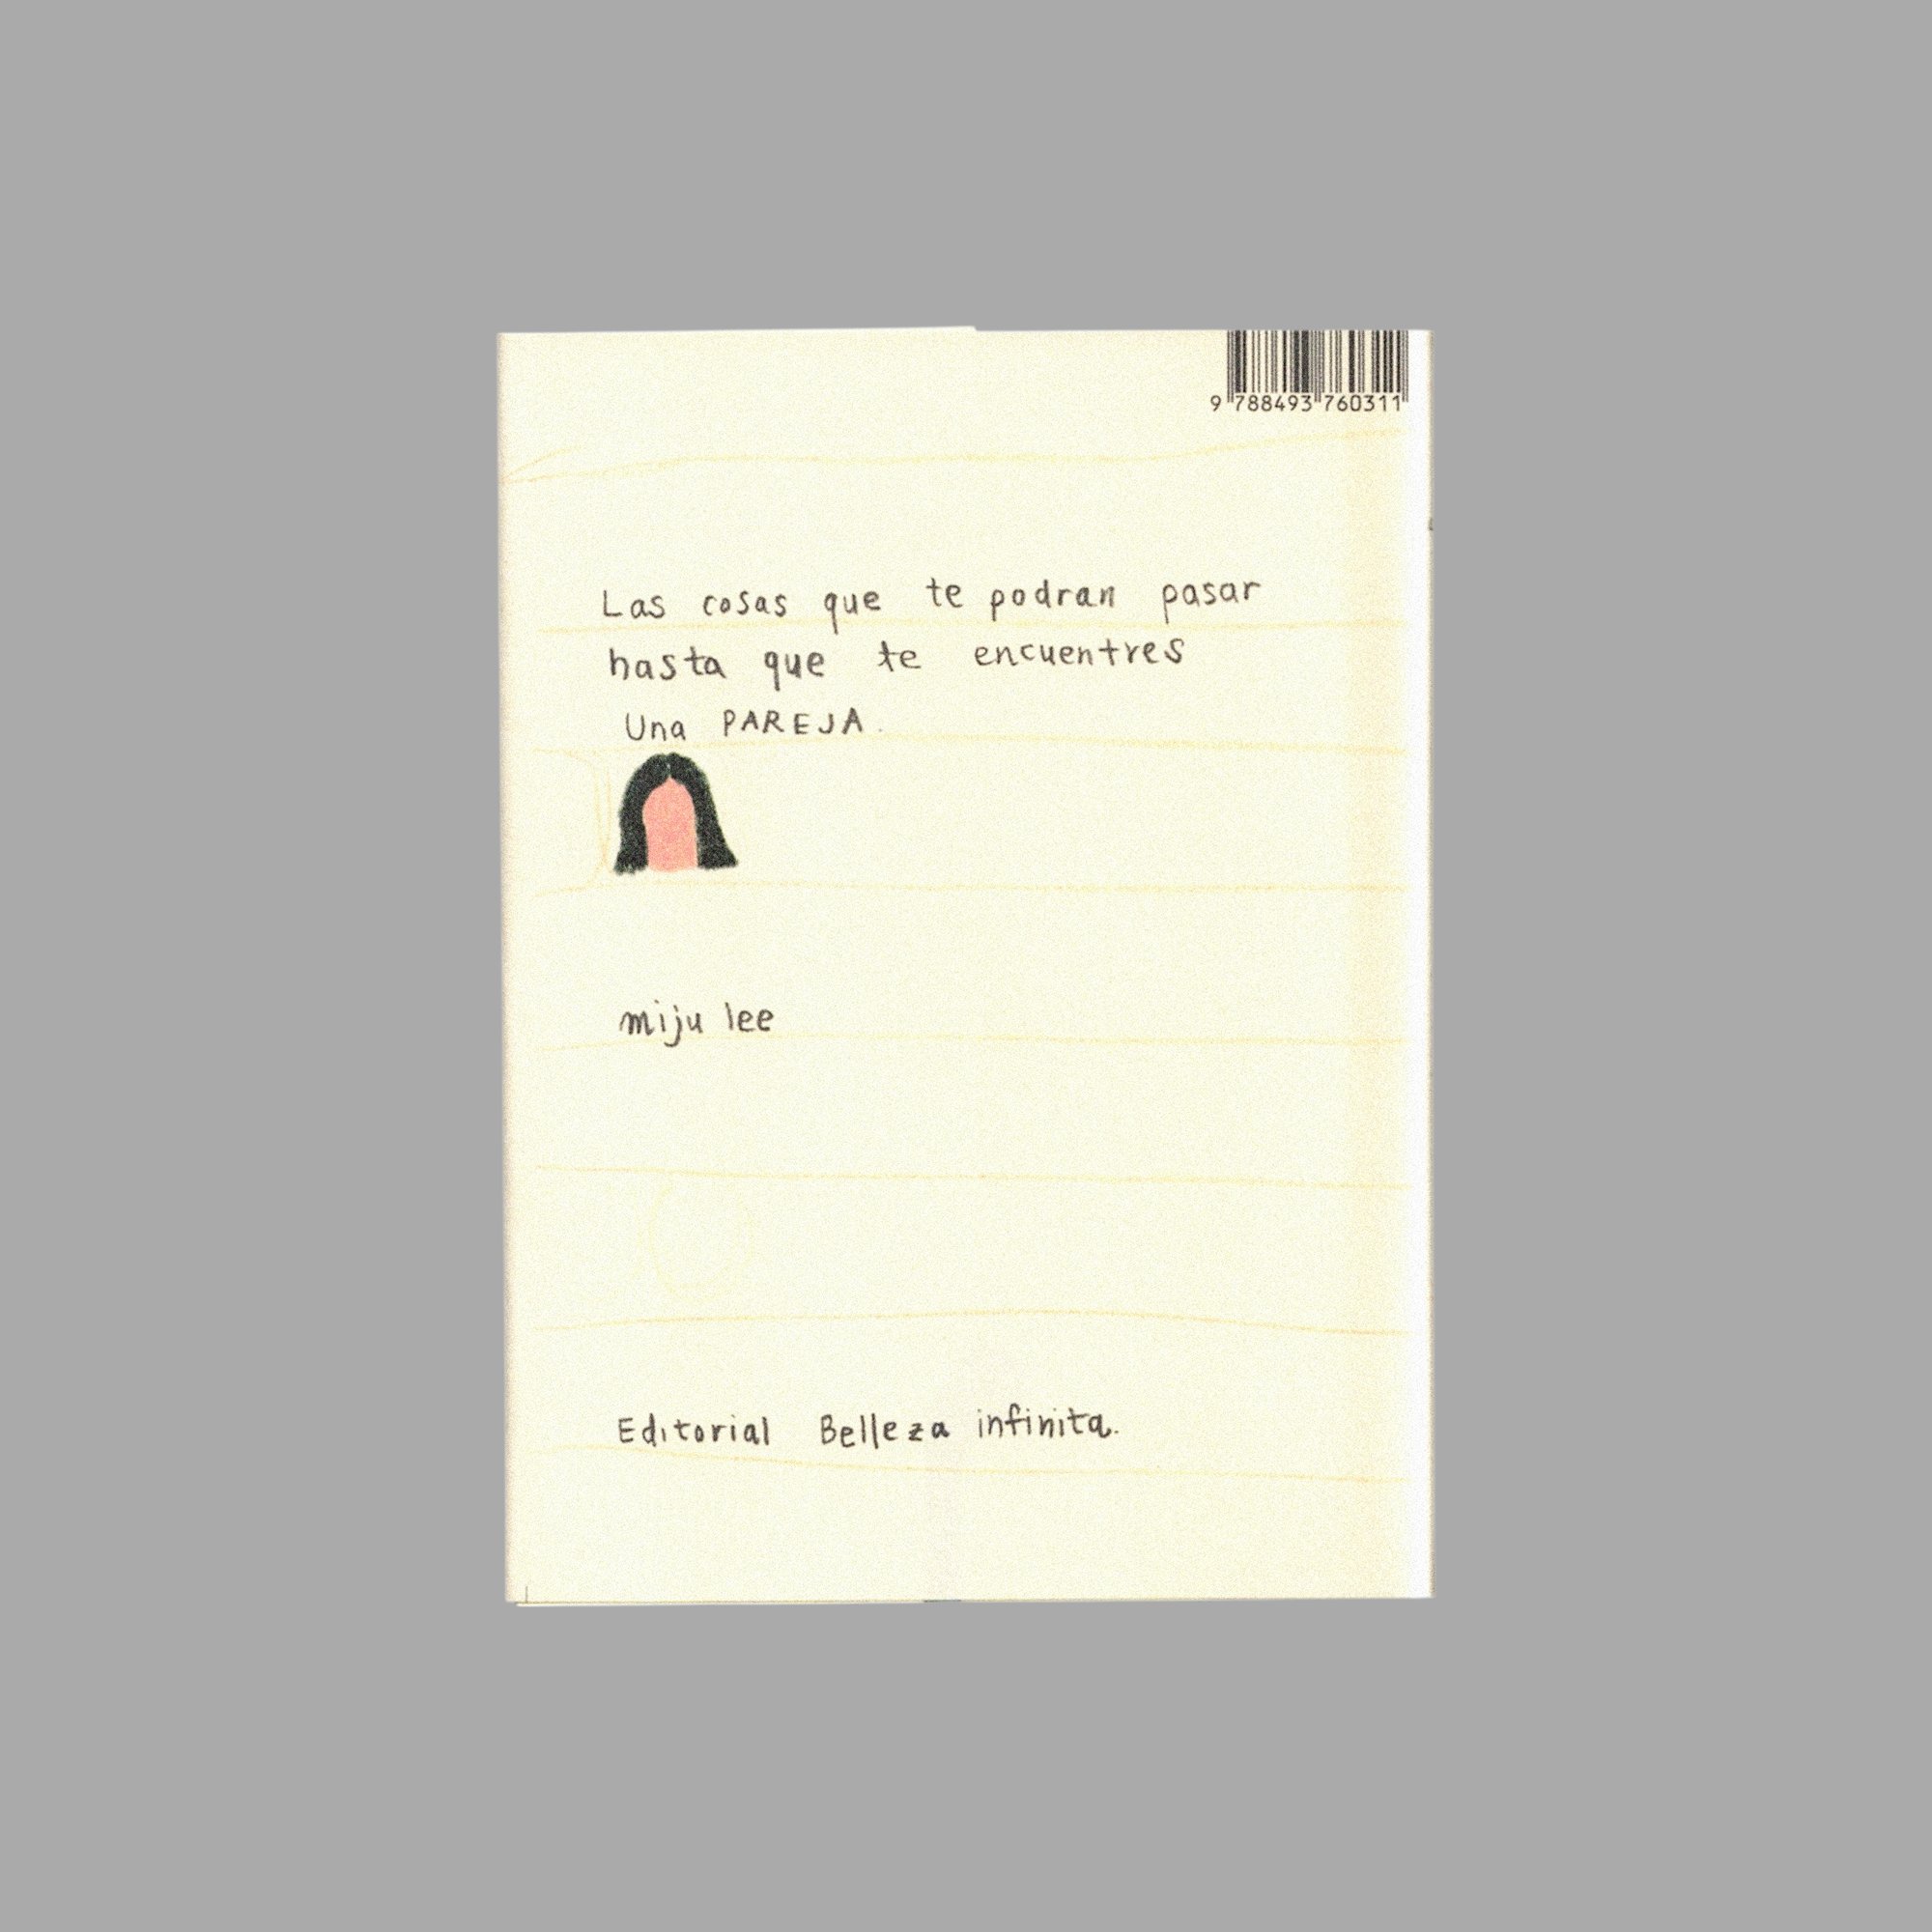 9 788493 760311
Las cosas que te podran pasar
hasta que te encuentres
Una PAREJA.
miju lee
Editorial Belleza infinita.